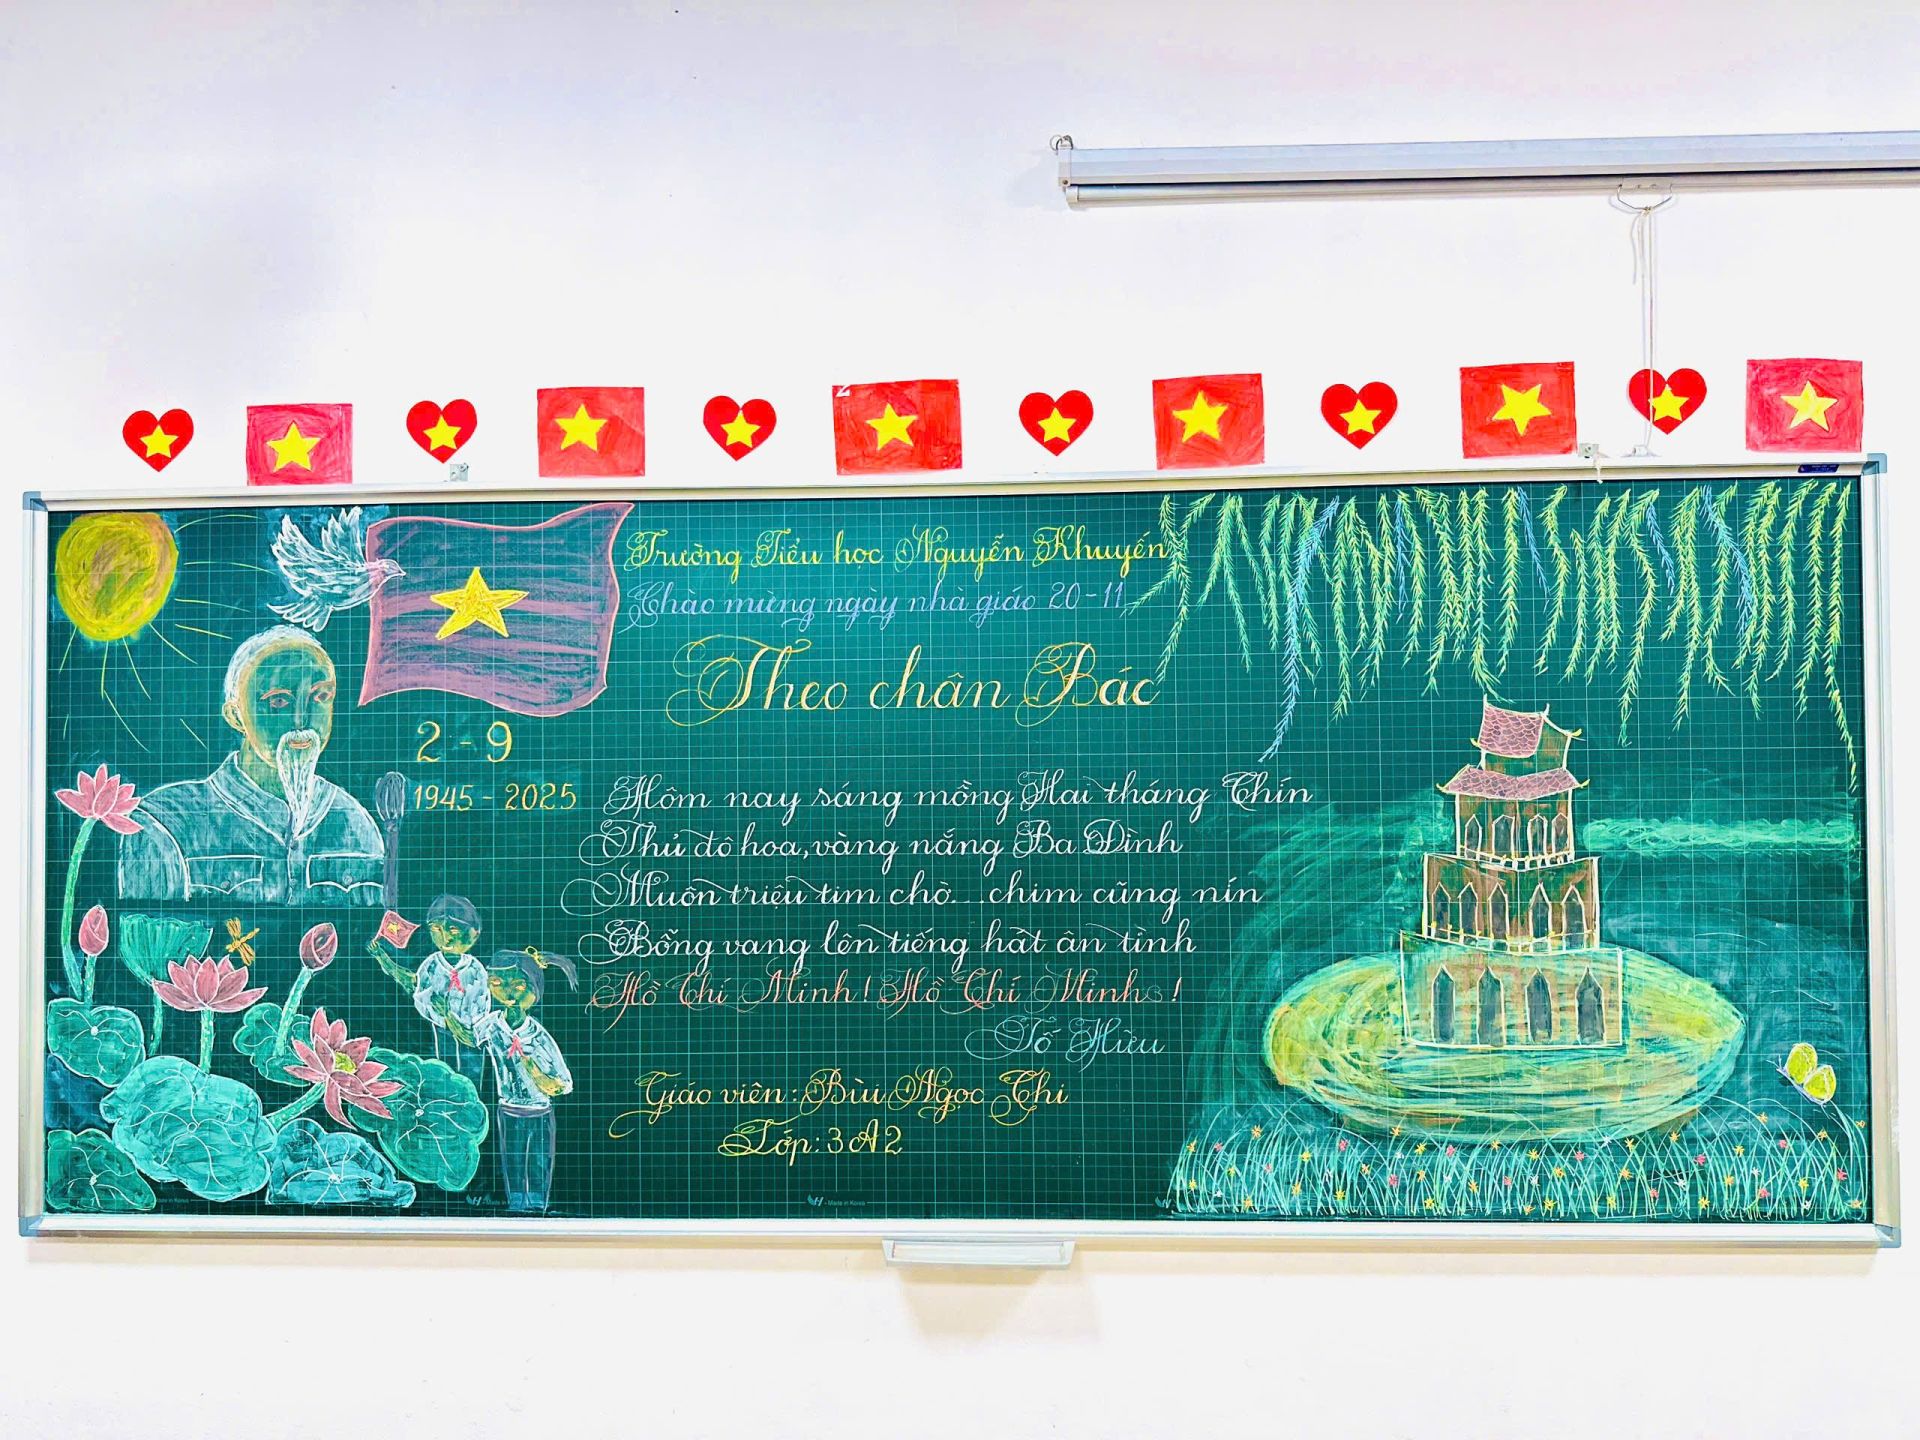 Trường Tiểu học Nguyễn Khuyến
Chào mừng ngày nhà giáo 20-11
Theo chân Bác
2 - 9
1945 - 2025
Hôm nay sáng mồng Hai tháng Chín
Thủ đô hoa, vàng nắng Ba Đình
Muôn triệu tim chờ... chim cũng nín
Bỗng vang lên tiếng hát ân tình
Hồ Chí Minh! Hồ Chí Minh !
Tố Hữu
Giáo viên: Bùi Ngọc Thi
Lớp: 3A2
Made in Korea